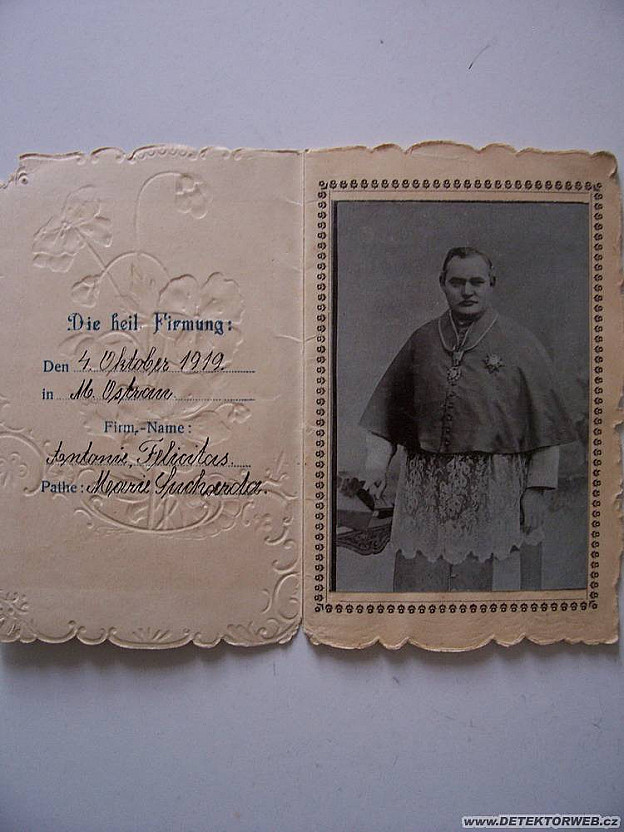 Die heil Firmung:
Den 4. Oktober 1919
in M. Ostrau
Firm.-Name:
Antonie, Felicitas.
Pathe: Marie Sucharda.
www.DETEKTORWEB.cz